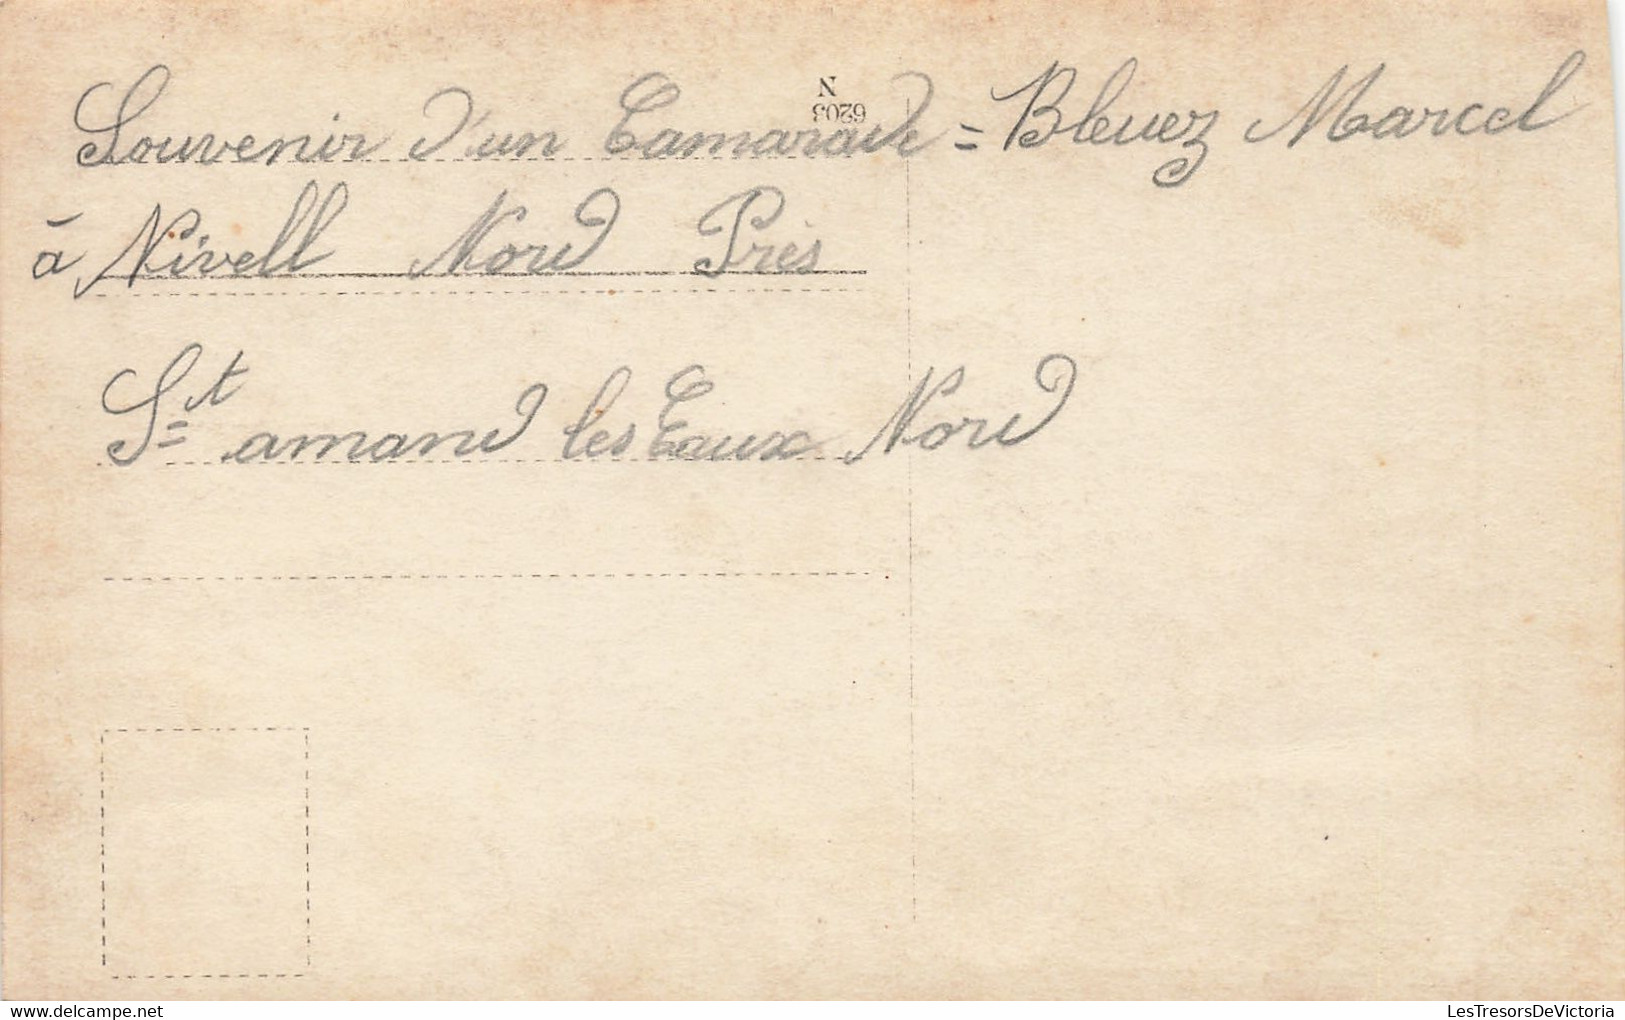 Souvenir d'un Camarade = Bleuez Marcel
à Nivell Nord Près
St amand les Eaux Nord
N
6203
delcampe.net
LesTresorsDeVictoria